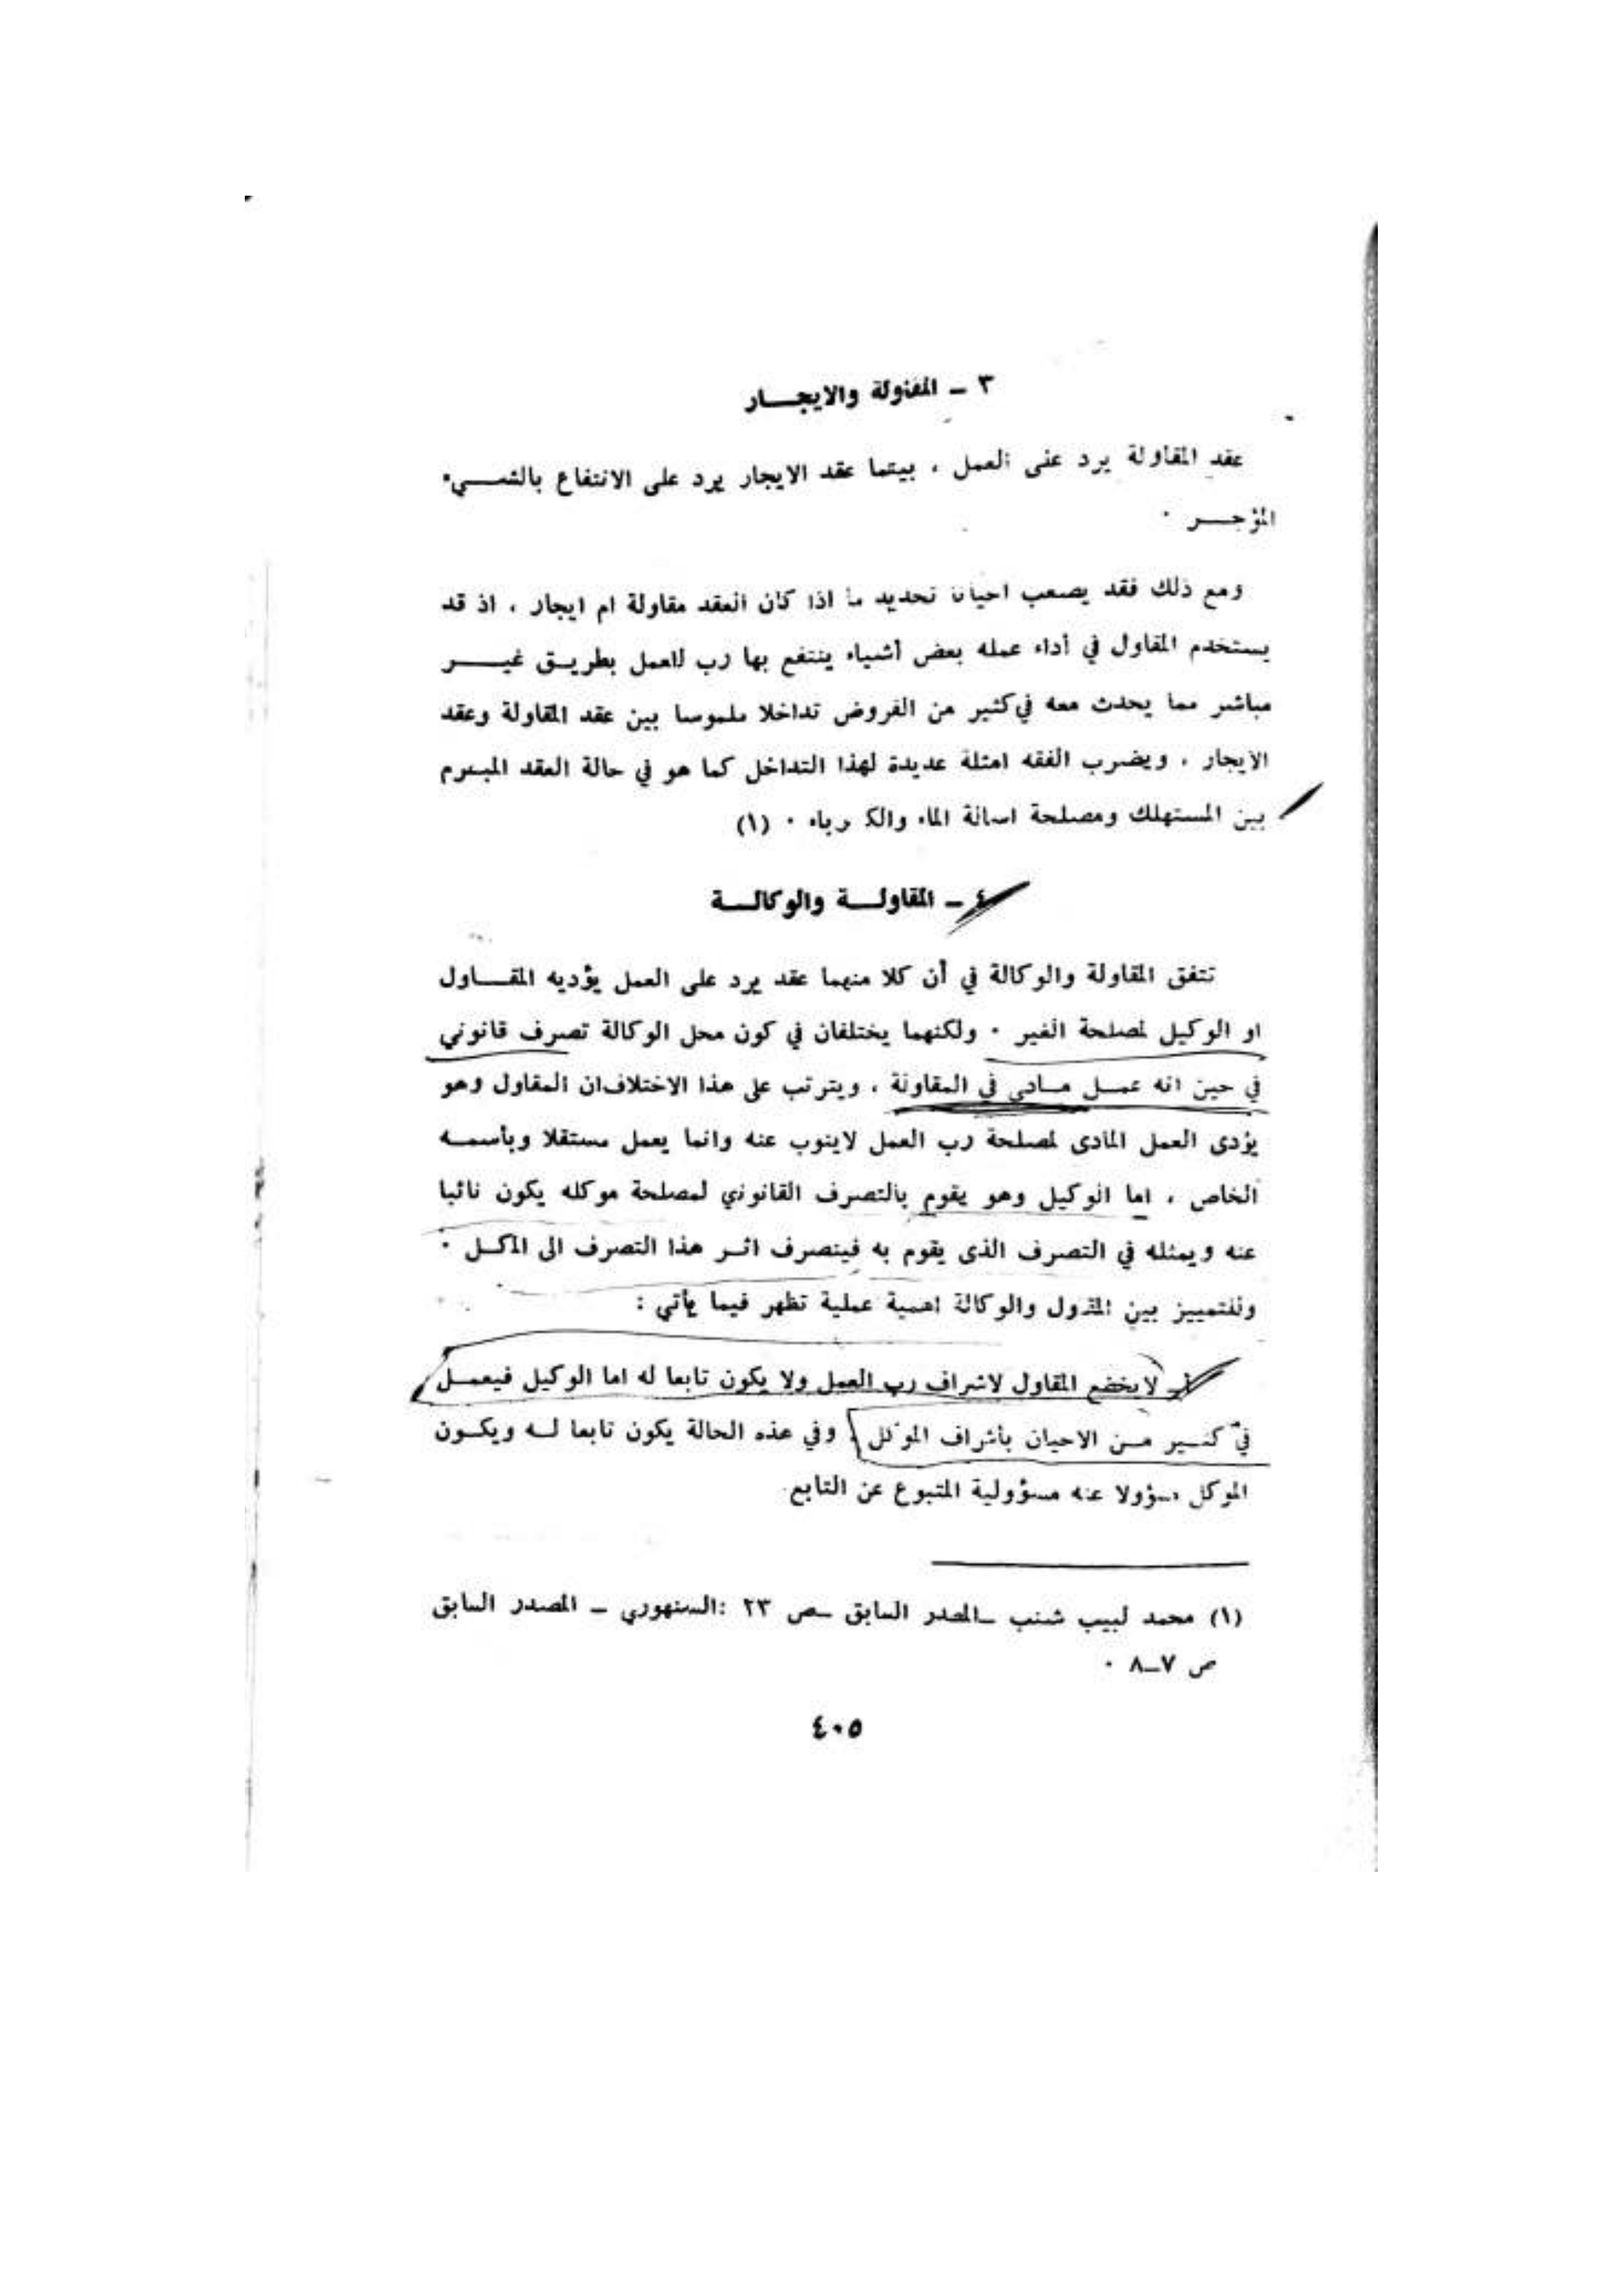 ٣ ـ المقاولة والايجـــار
عقد المقاولة يرد على العمل ، بينما عقد الايجار يرد على الانتفاع بالشـــيء
المؤجـــر ٠
ومع ذلك فقد يصعب احيانا تحديد ما اذا كان العقد مقاولة ام ايجار ، اذ قد
يستخدم المقاول في أداء عمله بعض أشياء ينتفع بها رب العمل بطريـق غيـــر
مباشر مما يحدث معه في كثير من الفروض تداخلا ملموسا بين عقد المقاولة وعقد
الايجار ، ويضرب الفقه امثلة عديدة لهذا التداخل كما هو في حالة العقد المبـرم
بين المستهلك ومصلحة اسالة الماء والكهرباء ٠ (١)
٤ ـ المقاولـــة والوكالـــة
تتفق المقاولة والوكالة في أن كلا منهما عقد يرد على العمل يؤديه المقـــاول
او الوكيل لمصلحة الغير ٠ ولكنهما يختلفان في كون محل الوكالة تصرف قانوني
في حين انه عمـــل مـــادي في المقاولة ، ويترتب على هذا الاختلاف ان المقاول وهو
يؤدى العمل المادى لمصلحة رب العمل لاينوب عنه وانما يعمل مستقلا وبأسمـــه
الخاص ، اما الوكيل وهو يقوم بالتصرف القانوني لمصلحة موكله يكون نائبا
عنه ويمثله في التصرف الذى يقوم به فينصرف اثـــر هذا التصرف الى المكـــل ٠
وللتمييز بين المقاول والوكالة اهمية عملية تظهر فيما يأتي :
١ـ لايخضع المقاول لاشراف رب العمل ولا يكون تابعا له اما الوكيل فيعمـــل
في كثـــير مـــن الاحيان بأشراف الموكل ، وفي هذه الحالة يكون تابعا لـــه ويكـــون
الموكل مسؤولا عنه مسؤولية المتبوع عن التابع
(١) محمد لبيب شنب ـ المصدر السابق ـ ص ٢٣ : السنهوري ـ المصدر السابق
ص ٧ـ٨ ٠
٤٠٥